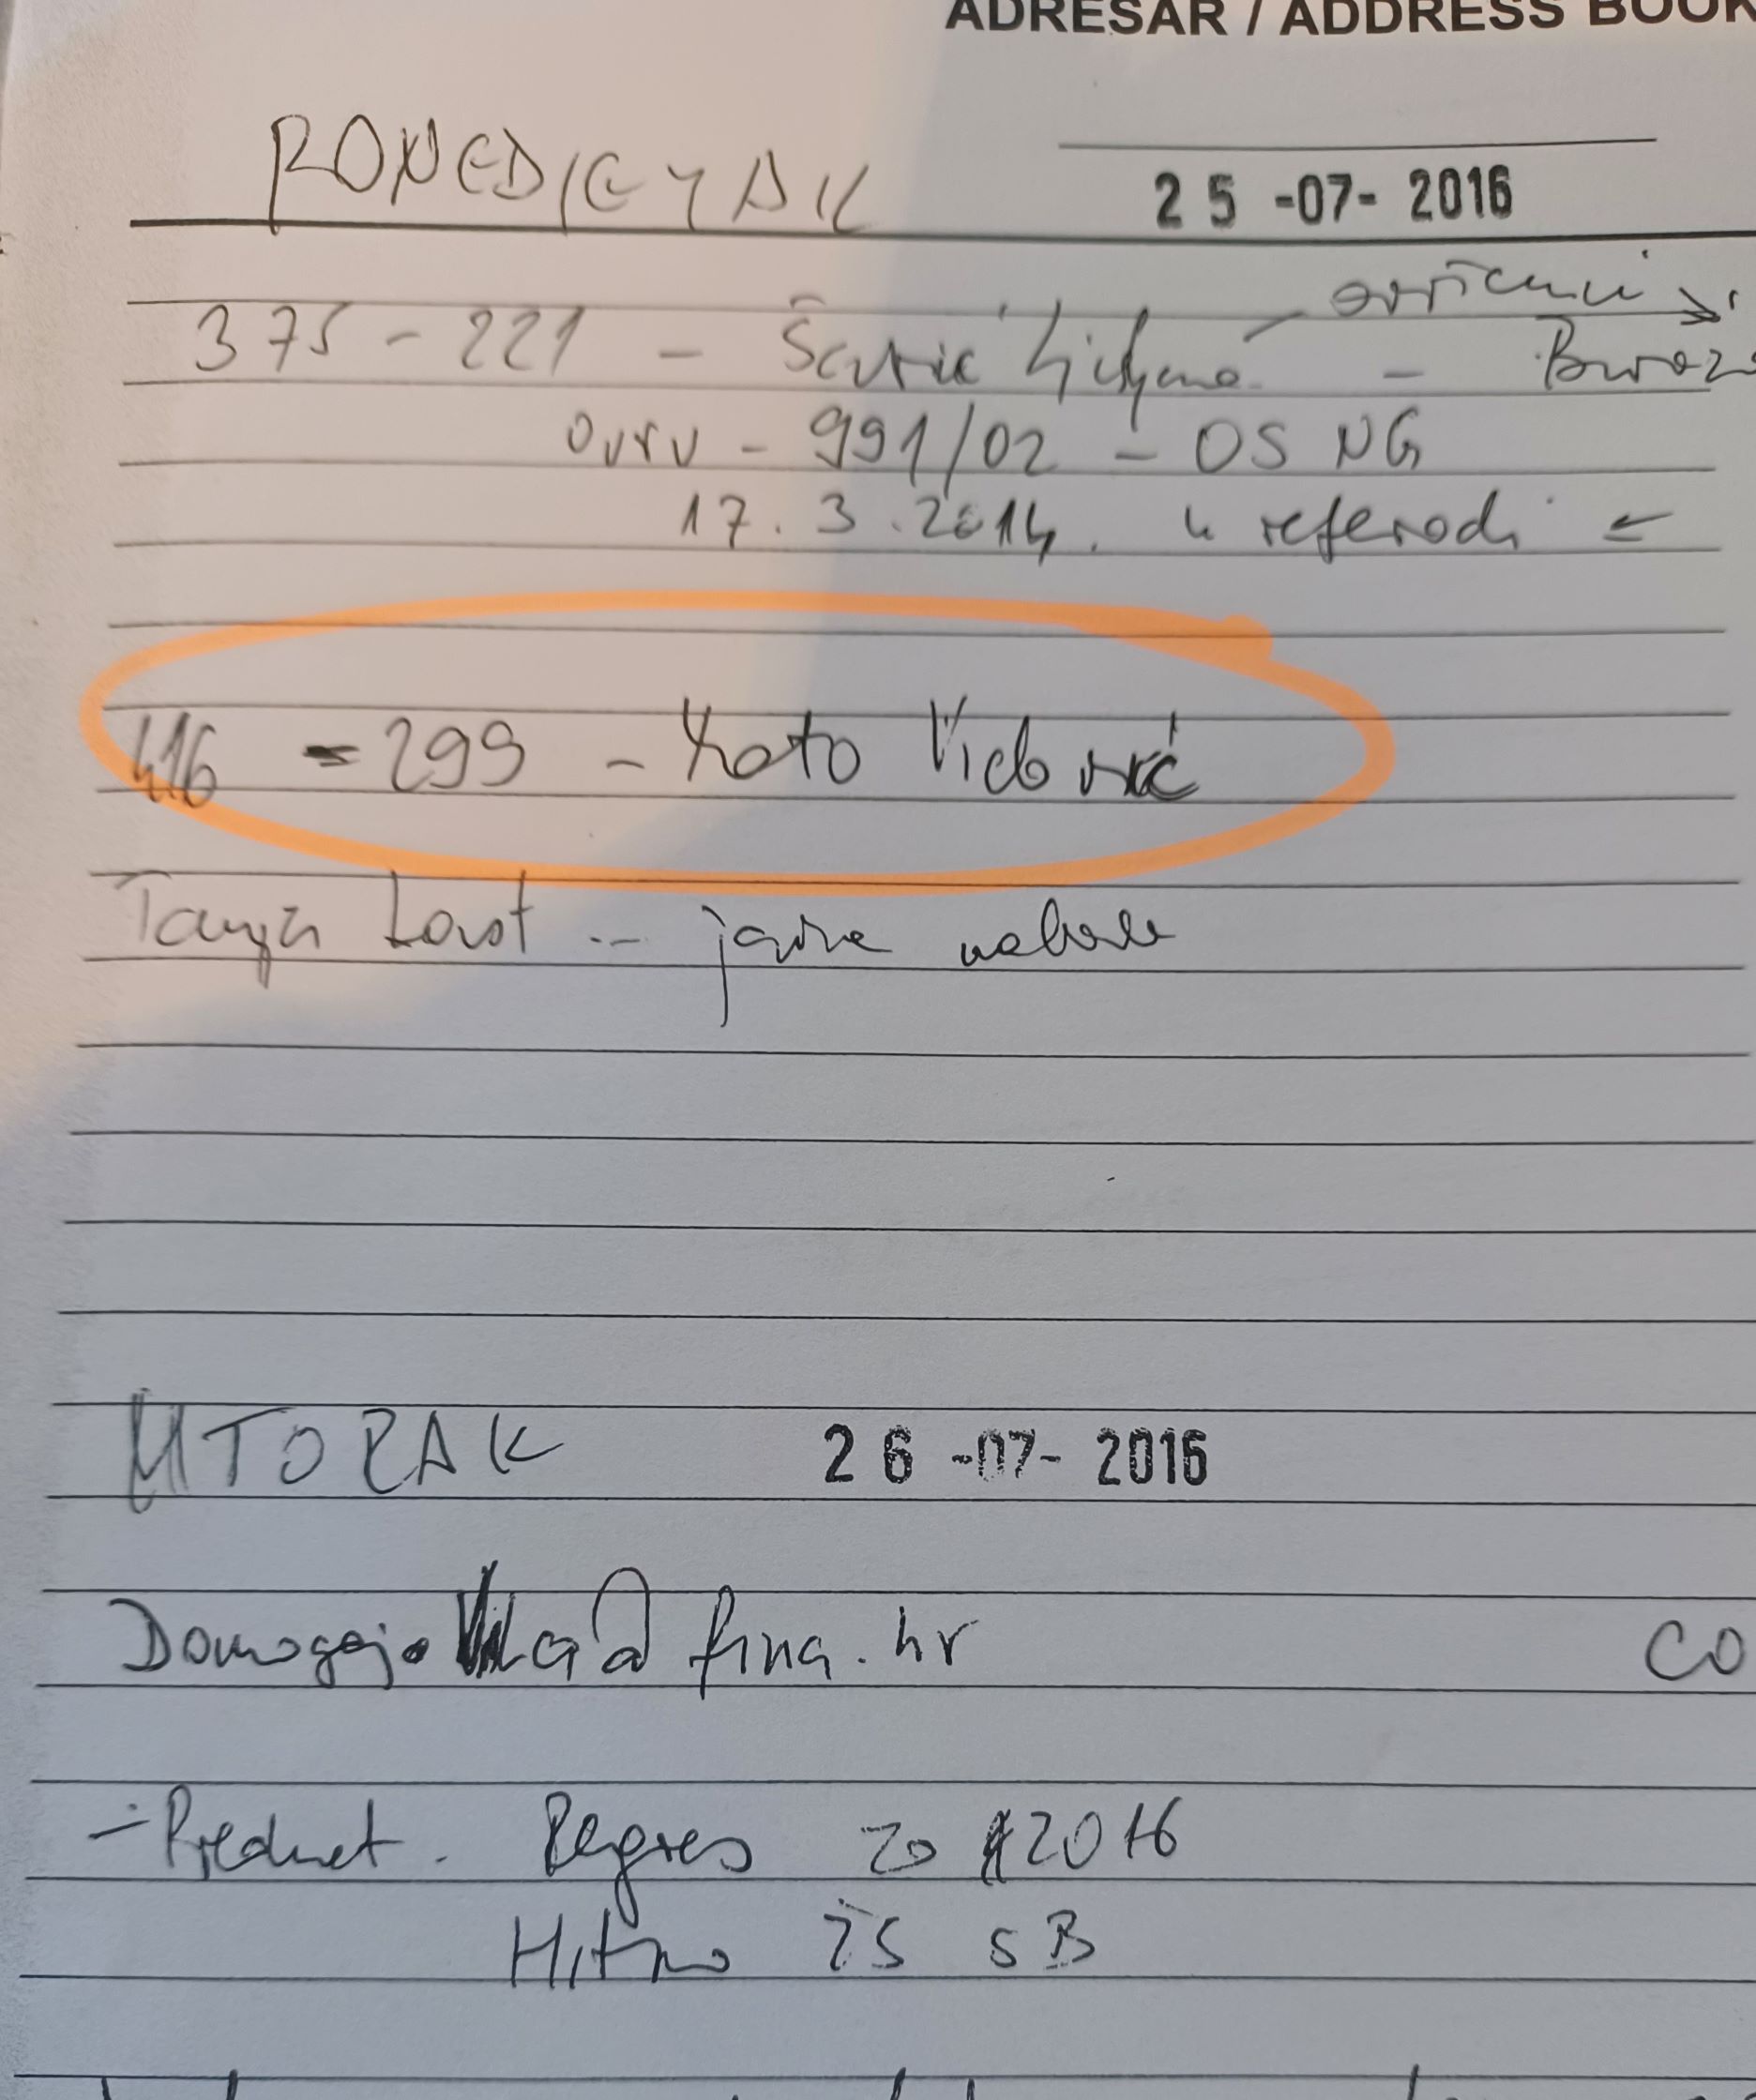 ADRESAR / ADDRESS BOOK
PONEDJELJAK 25 -07- 2016
375 - 221 - Šarić Ljiljana -
Ovrv - 991/02 - OS NG
17.3.2014. u referadi ←
416 = 299 - Kato Vidović
Tanja Laušt -- javna nabava
UTORAK 26 -07- 2016
Domagoj. @fina.hr CO
- Predmet. Regres za 2016
Hitno ŽS SB